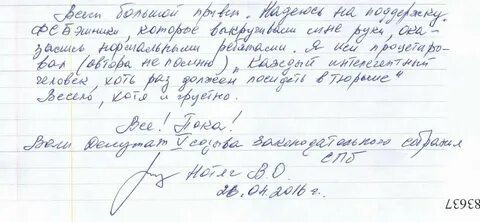 Всем большой привет. Надеюсь на поддержку.
ФСБэшники, которые выкручивали мне руки, ока-
зались нормальными ребятами. Я им процитиро-
вал (автора не помню) „Каждый интелегентный
человек, хоть раз должен посидеть в тюрьме“
Весело, хотя и грустно.
Все! Пока!
Ваш Депутат V созыва законодательного собрания
СПб
Нотяг В.О.
26.04.2016 г.
83637